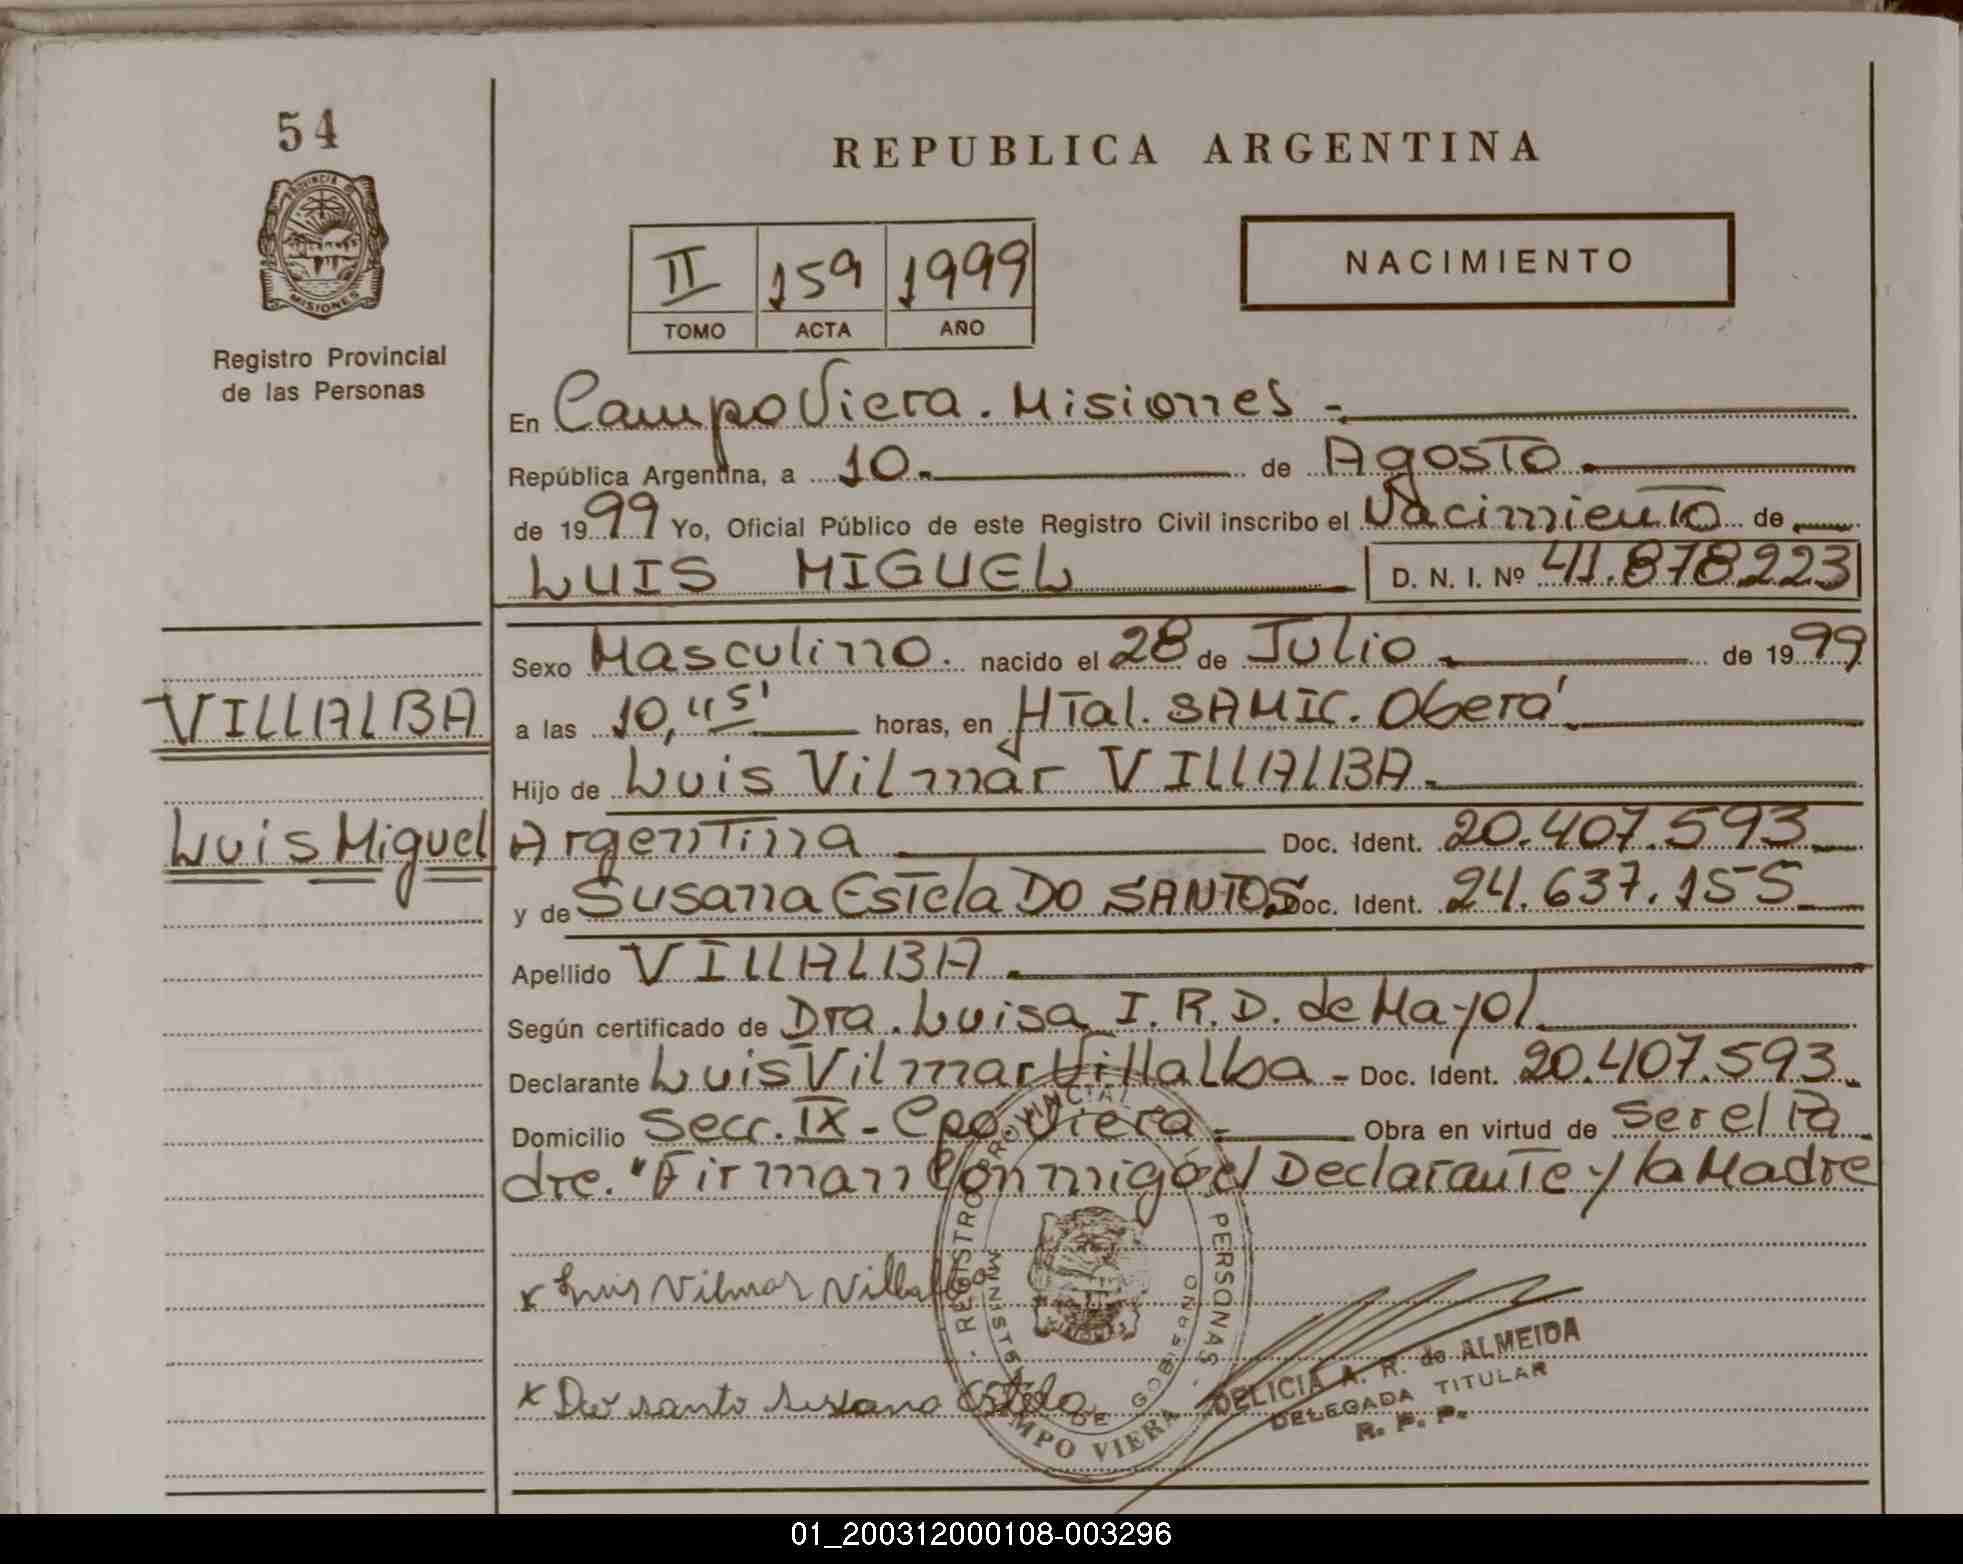 54
REPUBLICA ARGENTINA
PROVINCIA DE
MISIONES
Registro Provincial
de las Personas
II 159 1999
TOMO ACTA AÑO
NACIMIENTO
En Campo Viera. Misiones -
República Argentina, a 10. de Agosto.
de 1999 Yo, Oficial Público de este Registro Civil inscribo el Nacimiento de
LUIS MIGUEL D. N. I. Nº 41.878.223
Sexo Masculino. nacido el 28 de Julio. de 1999
VILLALBA
a las 10,45' horas, en HTal. SAMIC. Oberá
Hijo de Luis Vilmar VILLALBA.
Luis Miguel
Argentina Doc. Ident. 20.407.593
y de Susana Estela DO SANTOS Doc. Ident. 24.637.155
Apellido VILLALBA.
Según certificado de Dra. Luisa I. R. D. de Mayol
Declarante Luis Vilmar Villalba - Doc. Ident. 20.407.593.
Domicilio Secc. IX - Cpo Viera - Obra en virtud de ser el Pa
dre. "Firman Conmigo el Declarante y la Madre
x Luis Vilmar Villalba
x Do santo susana Estela
REGISTRO PROVINCIAL PERSONAS
MINISTE DE GOBIERNO
MPO VIERA
DELICIA A. R. de ALMEIDA
DELEGADA TITULAR
R. P. P.
01_200312000108-003296